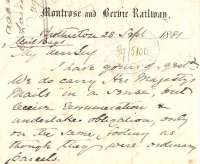 Montrose and Bervie Railway,
28 Sept 1881
My dear Sir
I have yours of
We do carry Her Majesty's
Mails in a sense, but
receive remuneration &
undertake obligation, only
on the same footing as
though they were ordinary
parcels.